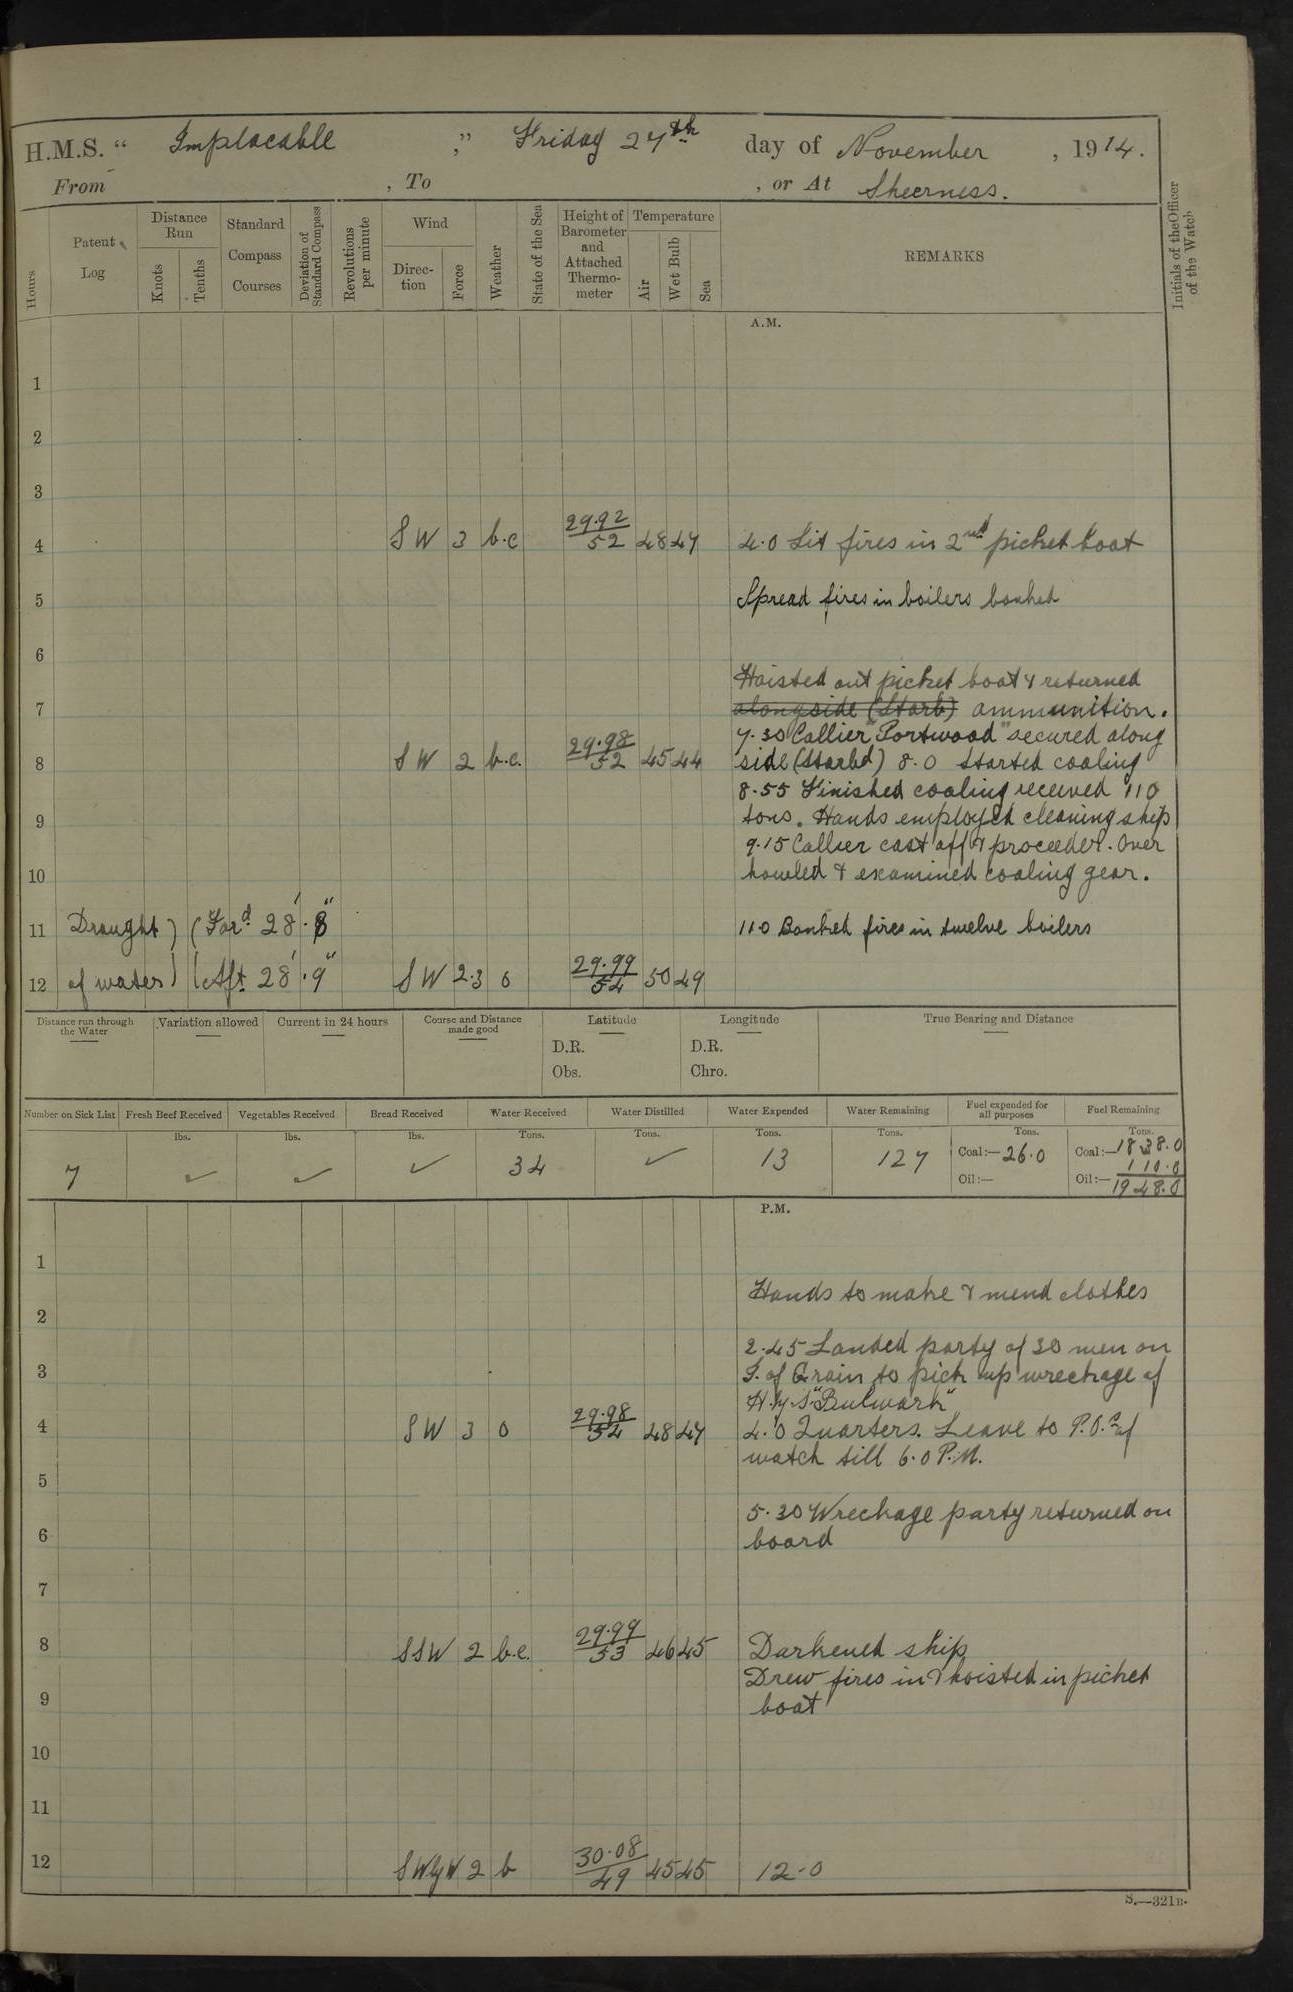 H.M.S. “ Implacable ,” Friday 27th day of November , 1914.
From , To , or At Sheerness.
Hours
Patent Log
Distance Run
Knots
Tenths
Standard Compass Courses
Deviation of Standard Compass
Revolutions per minute
Wind
Direc- tion
Force
Weather
State of the Sea
Height of Barometer and Attached Thermo- meter
Temperature
Air
Wet Bulb
Sea
REMARKS
Initials of the Officer of the Watch
A.M.
1
2
3
4 SW 3 b.c 29.92 52 48 47 4.0 Lit fires in 2nd picket boat
5 Spread fires in boilers banked
6
Hoisted out picket boat & returned
7 alongside (Starb) ammunition.
7.30 Collier "Portwood" secured along
8 SW 2 b.c. 29.98 52 45 44 side (Starbd) 8.0 Started coaling
8.55 Finished coaling received 110
9 tons. Hands employed cleaning ship
9.15 Collier cast off & proceeded. Over
10 hauled & examined coaling gear.
11 Draught ) ( Ford 28'.8" 11.0 Banked fires in twelve boilers
12 of water ) ( Aft 28'.9" SW 2.3 o 29.99 54 50 49
Distance run through the Water
Variation allowed
Current in 24 hours
Course and Distance made good
Latitude
D.R.
Obs.
Longitude
D.R.
Chro.
True Bearing and Distance
Number on Sick List
Fresh Beef Received
Vegetables Received
Bread Received
Water Received
Water Distilled
Water Expended
Water Remaining
Fuel expended for all purposes
Fuel Remaining
lbs. lbs. lbs. Tons. Tons. Tons. Tons. Tons. Tons.
7 ✓ ✓ ✓ 34 ✓ 13 127 Coal:—26.0 Coal:—1838.0
110.0
Oil:— Oil:—1948.0
P.M.
1
Hands to make & mend clothes
2
2.45 Landed party of 30 men on
3 I. of Grain to pick up wreckage of
H.M.S. "Bulwark"
4 SW 3 o 29.98 54 48 47 4.0 Quarters. Leave to P.O.s of
watch till 6.0 P.M.
5
5.30 Wreckage party returned on
6 board
7
8 SSW 2 b.c. 29.99 53 46 45 Darkened ship
Drew fires in & hoisted in picket
9 boat
10
11
12 SWyW 2 b 30.08 49 45 45 12.0
S.—321B.